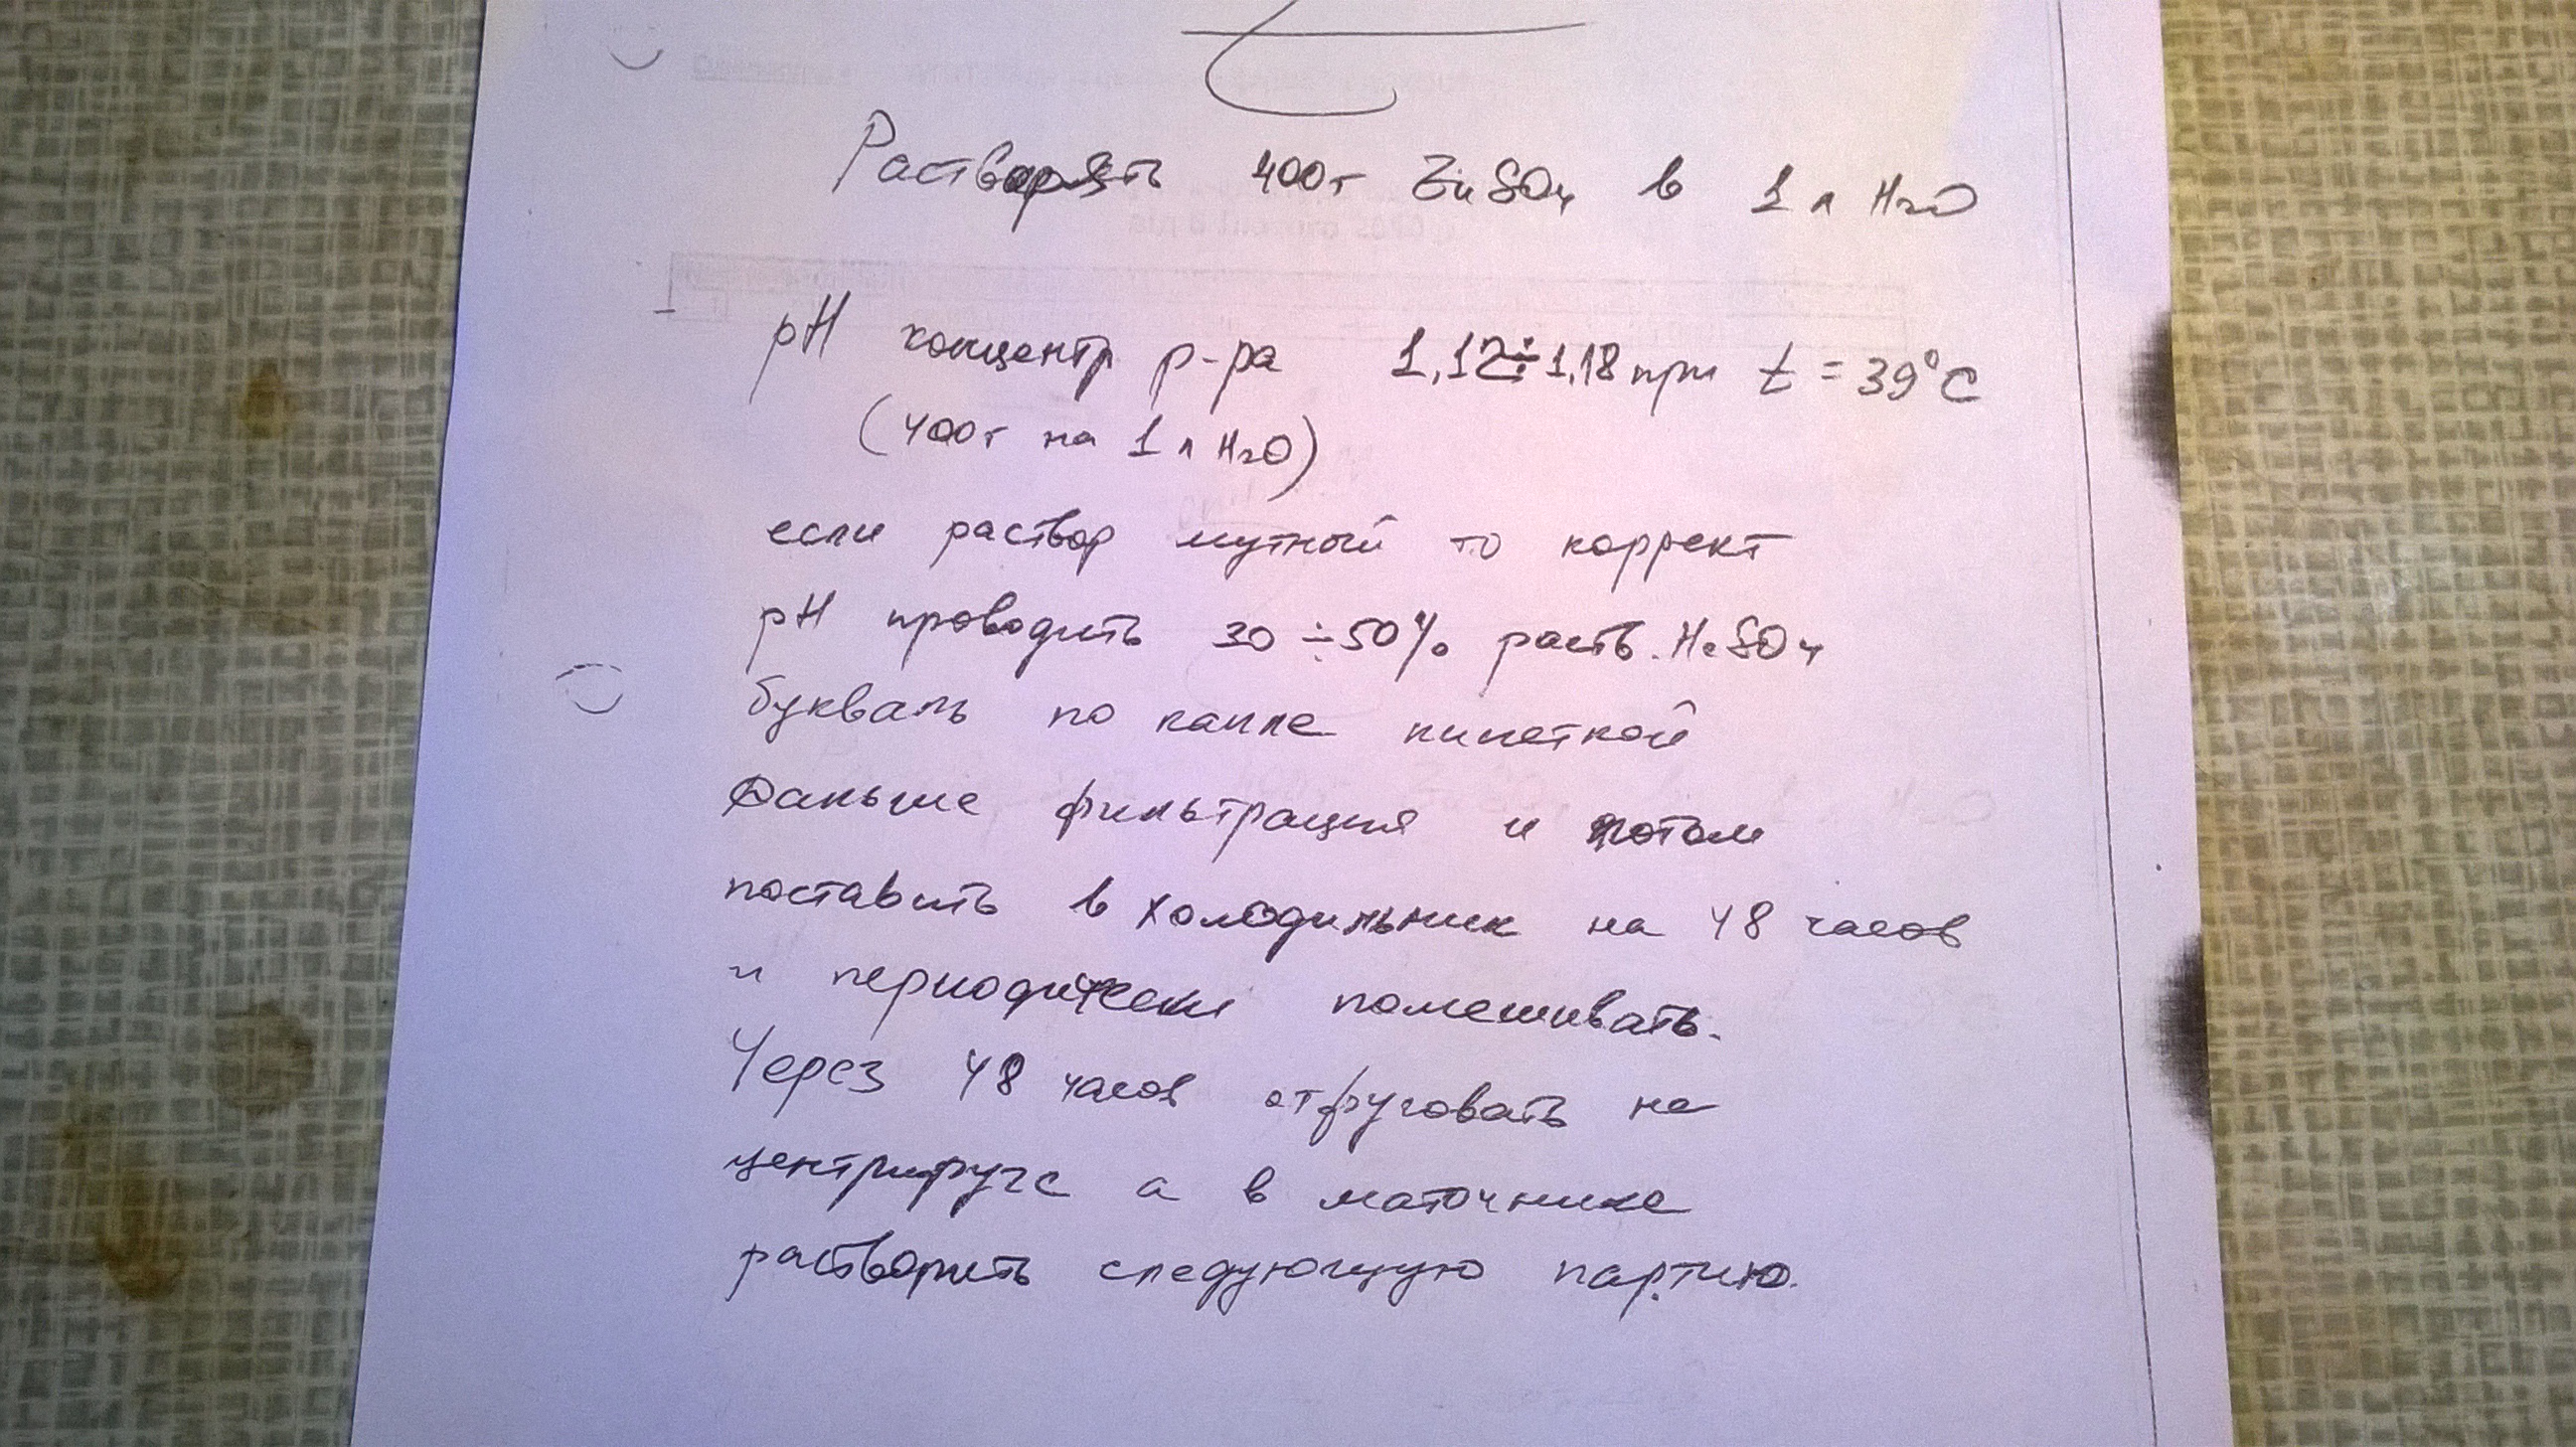 Растворять 400г ZnSO4 в 1 л H2O
pH концентр р-ра 1,12÷1,18 при t = 39°C
(400г на 1 л H2O)
если раствор мутный то коррект
pH проводить 30÷50% раств. H2SO4
букваль по капле пипеткой
Дальше фильтрация и потом
поставить в холодильник на 48 часов
и периодически помешивать.
Через 48 часов отфуговать на
центрифуге а в маточнике
растворить следующую партию.